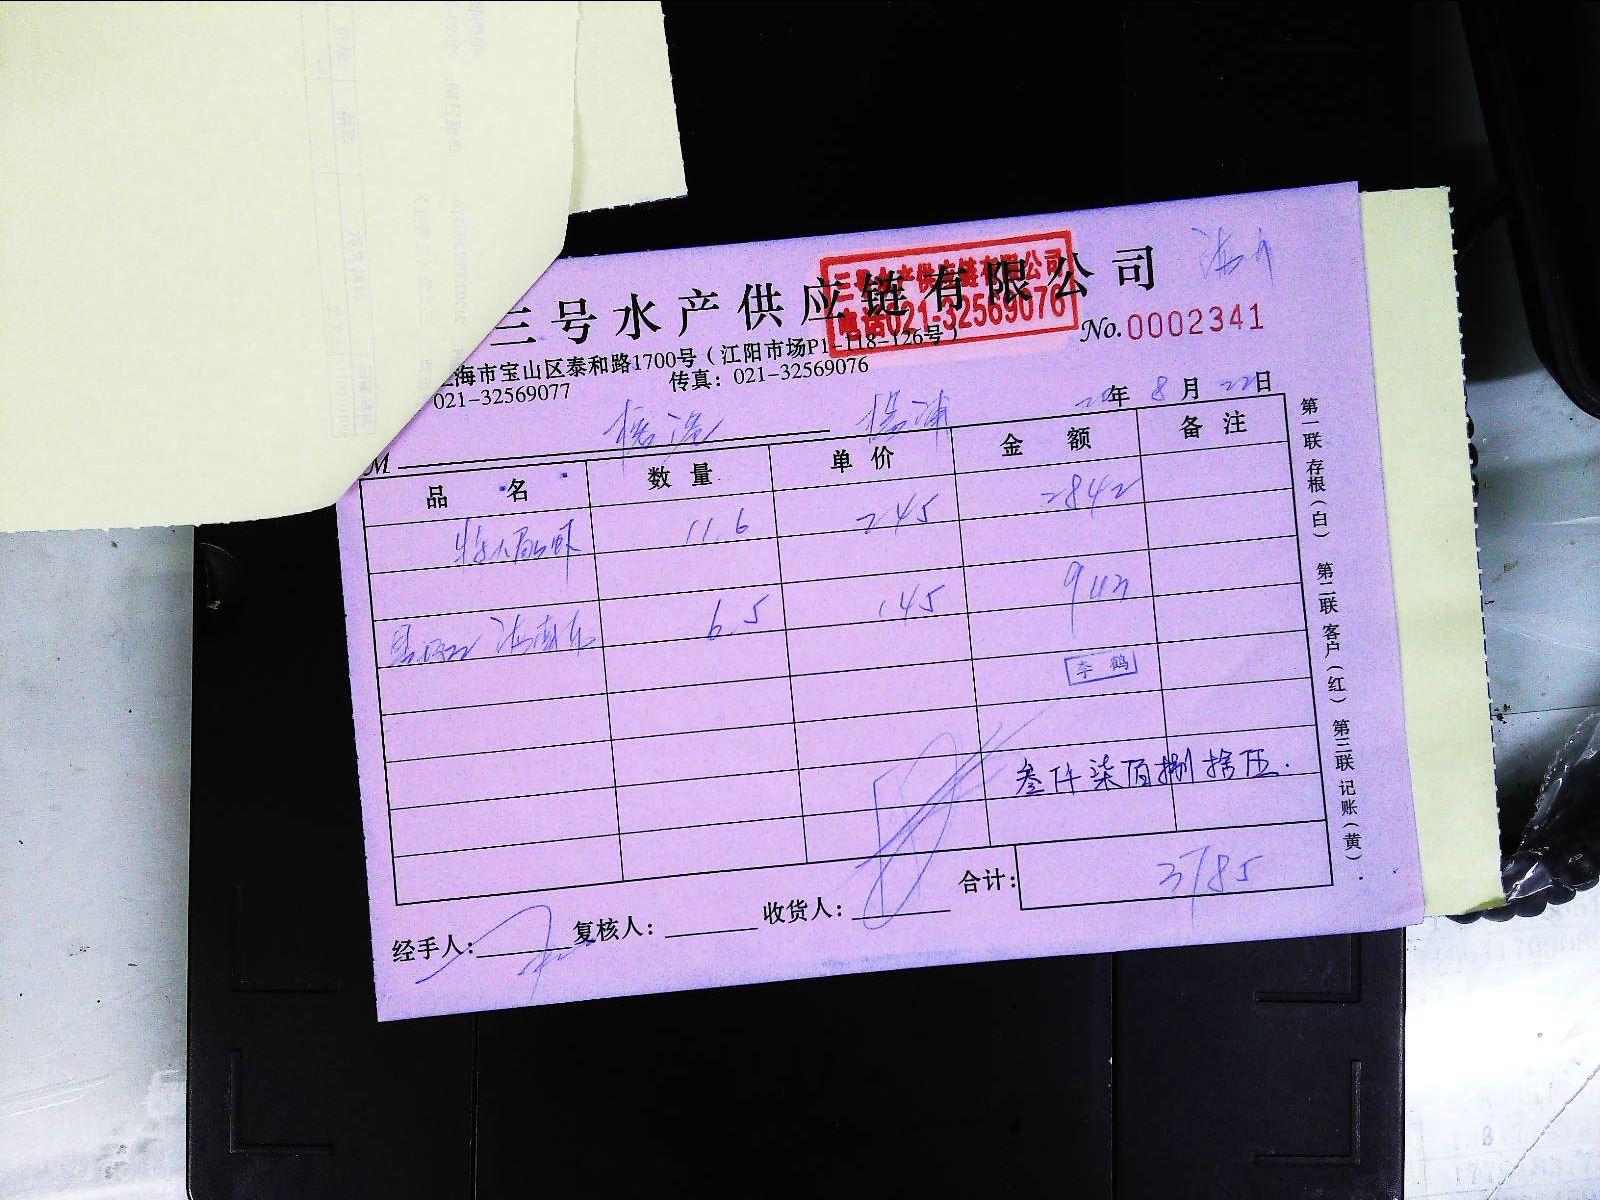 三号水产供应链有限公司
三号水产供应链有限公司
电话021-32569076
No.0002341
海市宝山区泰和路1700号（江阳市场P1-118-126号）
021-32569077 传真：021-32569076
杨浦
20年 8月 22日
M
品名 数量 单价 金额 备注
11.6 245 2842
6.5 145 943
李鹤
叁仟柒佰捌拾伍.
合计： 3785
经手人： 复核人： 收货人：
第一联 存根（白） 第二联 客户（红） 第三联 记账（黄）